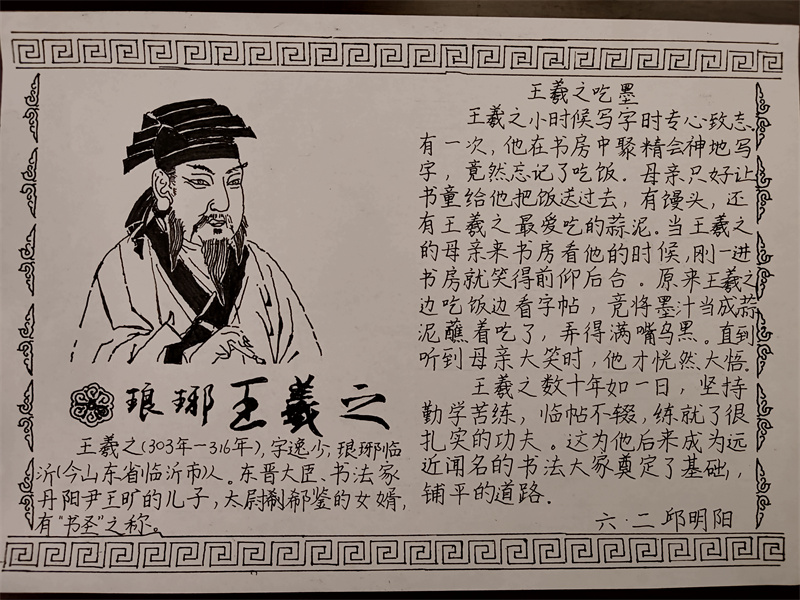 王羲之吃墨
王羲之小时候写字时专心致志.
有一次，他在书房中聚精会神地写
字，竟然忘记了吃饭. 母亲只好让
书童给他把饭送过去，有馒头，还
有王羲之最爱吃的蒜泥. 当王羲之
的母亲来书房看他的时候，刚一进
书房就笑得前仰后合。原来王羲之
边吃饭边看字帖，竟将墨汁当成蒜
泥蘸着吃了，弄得满嘴乌黑。直到
听到母亲大笑时，他才恍然大悟.
王羲之数十年如一日，坚持
勤学苦练，临帖不辍，练就了很
扎实的功夫。这为他后来成为远
近闻名的书法大家奠定了基础，
铺平的道路.
六·二 邱明阳
琅琊 王羲之
王羲之(303年—316年)，字逸少，琅琊临
沂(今山东省临沂市)人。东晋大臣、书法家
丹阳尹王旷的儿子，太尉郗鉴的女婿，
有“书圣”之称。